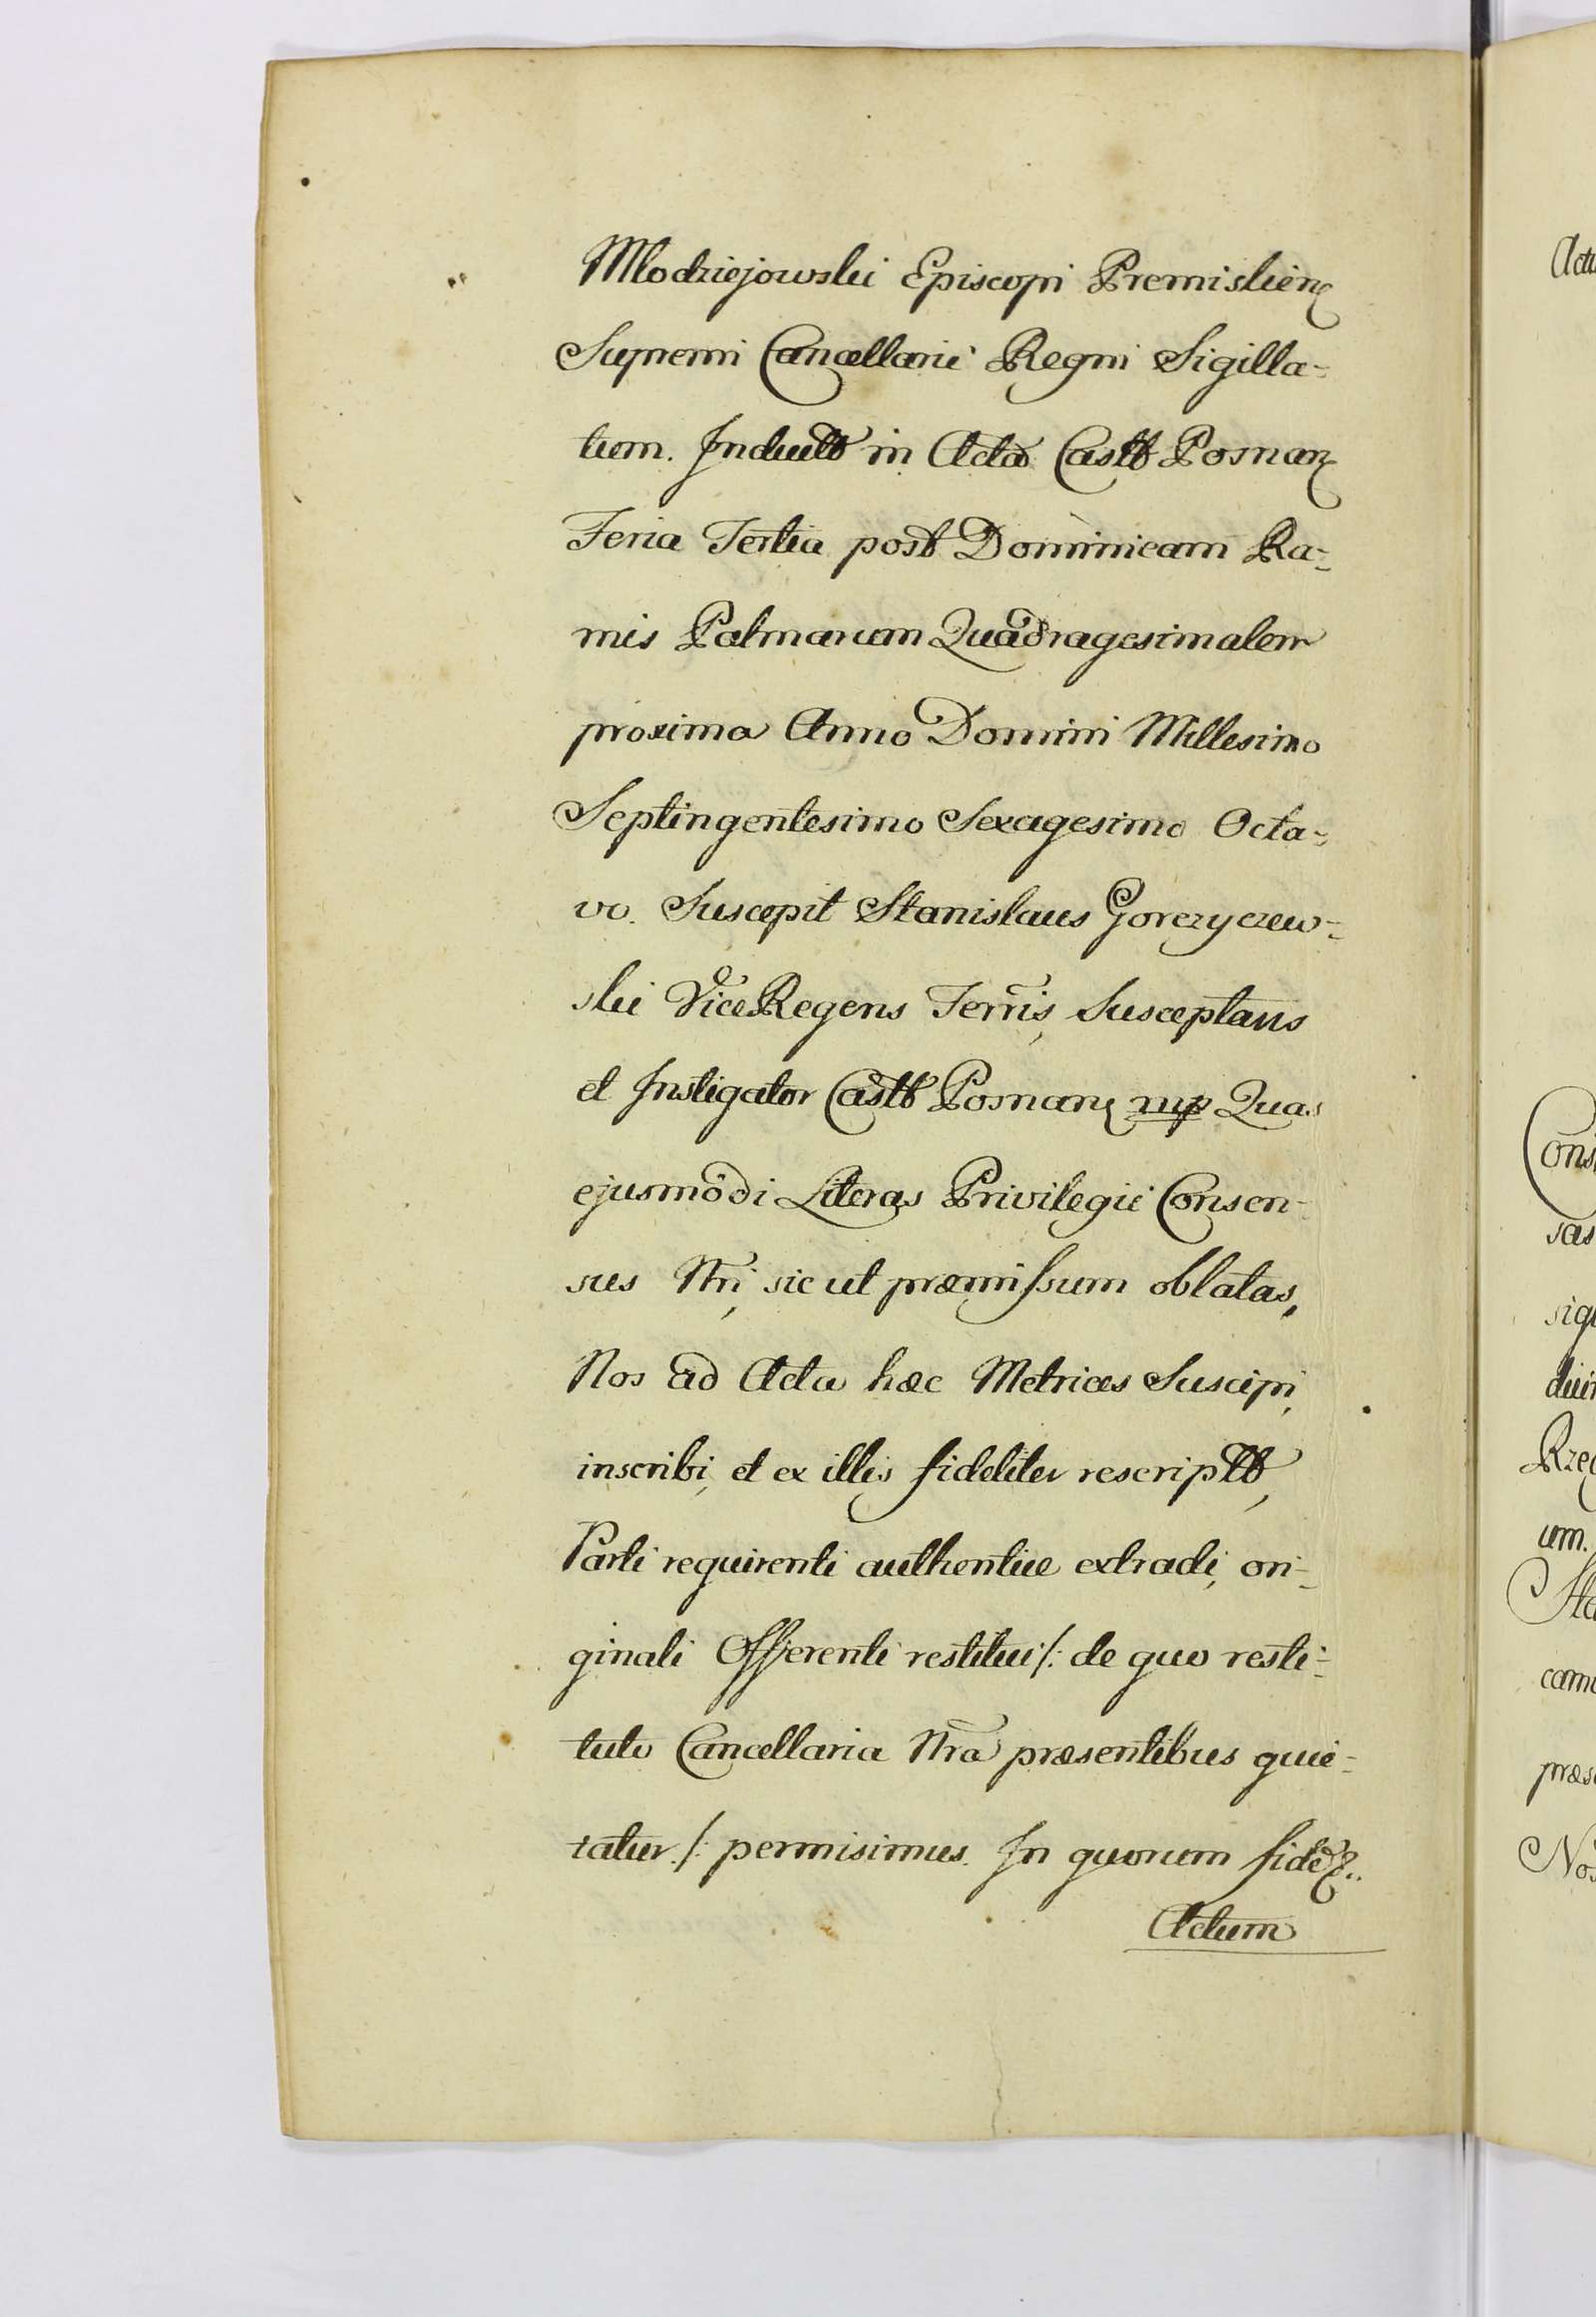 Mlodziejowski Episcopi Premislien
Supremi Cancellarii Regni Sigilla=
tum. Induct in Acta Castr Posnan
Feria Tertia post Dominicam Ra=
mis Palmarum Quadragesimalem
proxima Anno Domini Millesimo
Septingentesimo Sexagesimo Octa=
vo. Suscepit Stanislaus Gorczyczew=
ski ViceRegens Terris, Susceptans
et Instigator Castr Posnan mp Quas
ejusmodi Literas Privilegii Consen=
sus Nri, sic ut præmissum oblatas,
Nos ad Acta hæc Metrices Suscipi,
inscribi, et ex illis fideliter rescript,
Parti requirenti authentice extradi, ori=
ginali Offerenti restitui /: de quo resti=
tuto Cancellaria Nra præsentibus quie=
tatur :/ permisimus. In quorum fidē &..
Actum
Actu
Cons
sas
sigi
Rzec
um.
Sta
came
præs
Nos